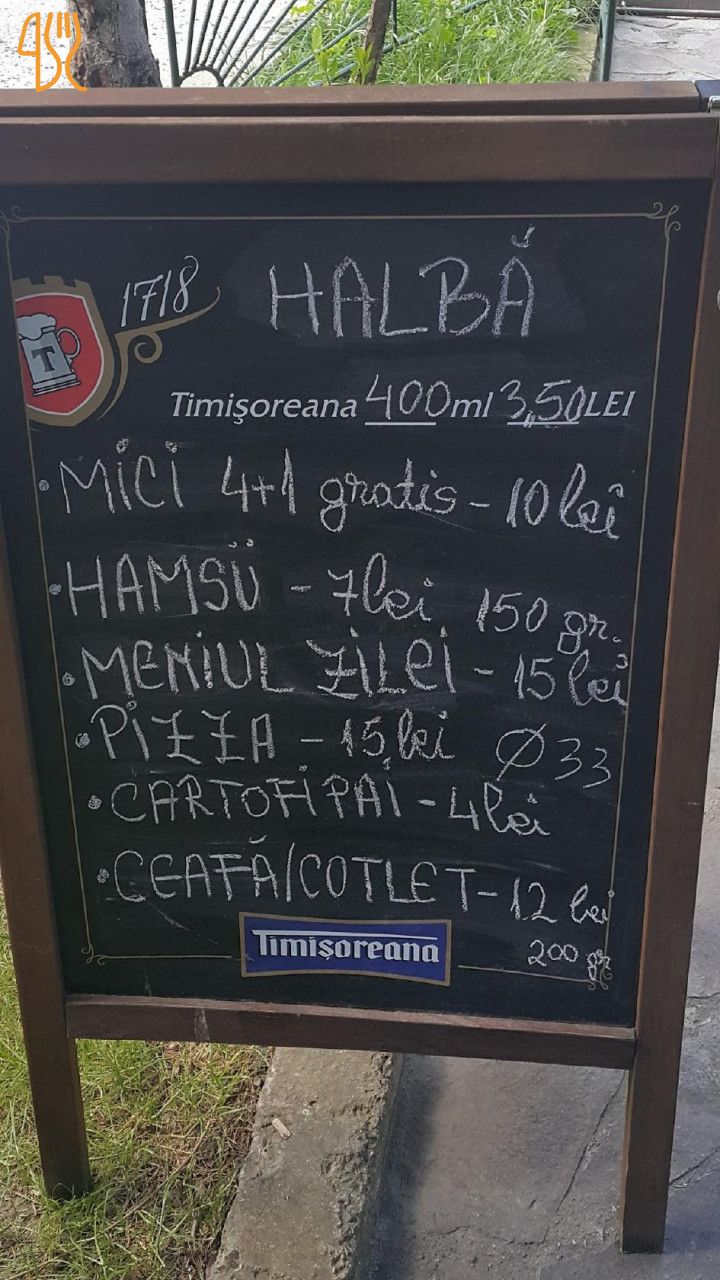 1718
HALBĂ
T
Timișoreana 400ml 3,50LEI
• MICI 4+1 gratis - 10 lei
• HAMSÜ - 7 lei 150 gr.
• MENIUL ZILEI - 15 lei
• PIZZA - 15 lei Ø 33
• CARTOFI PAI - 4 lei
• CEAFĂ/COTLET - 12 lei
200 gr
Timișoreana